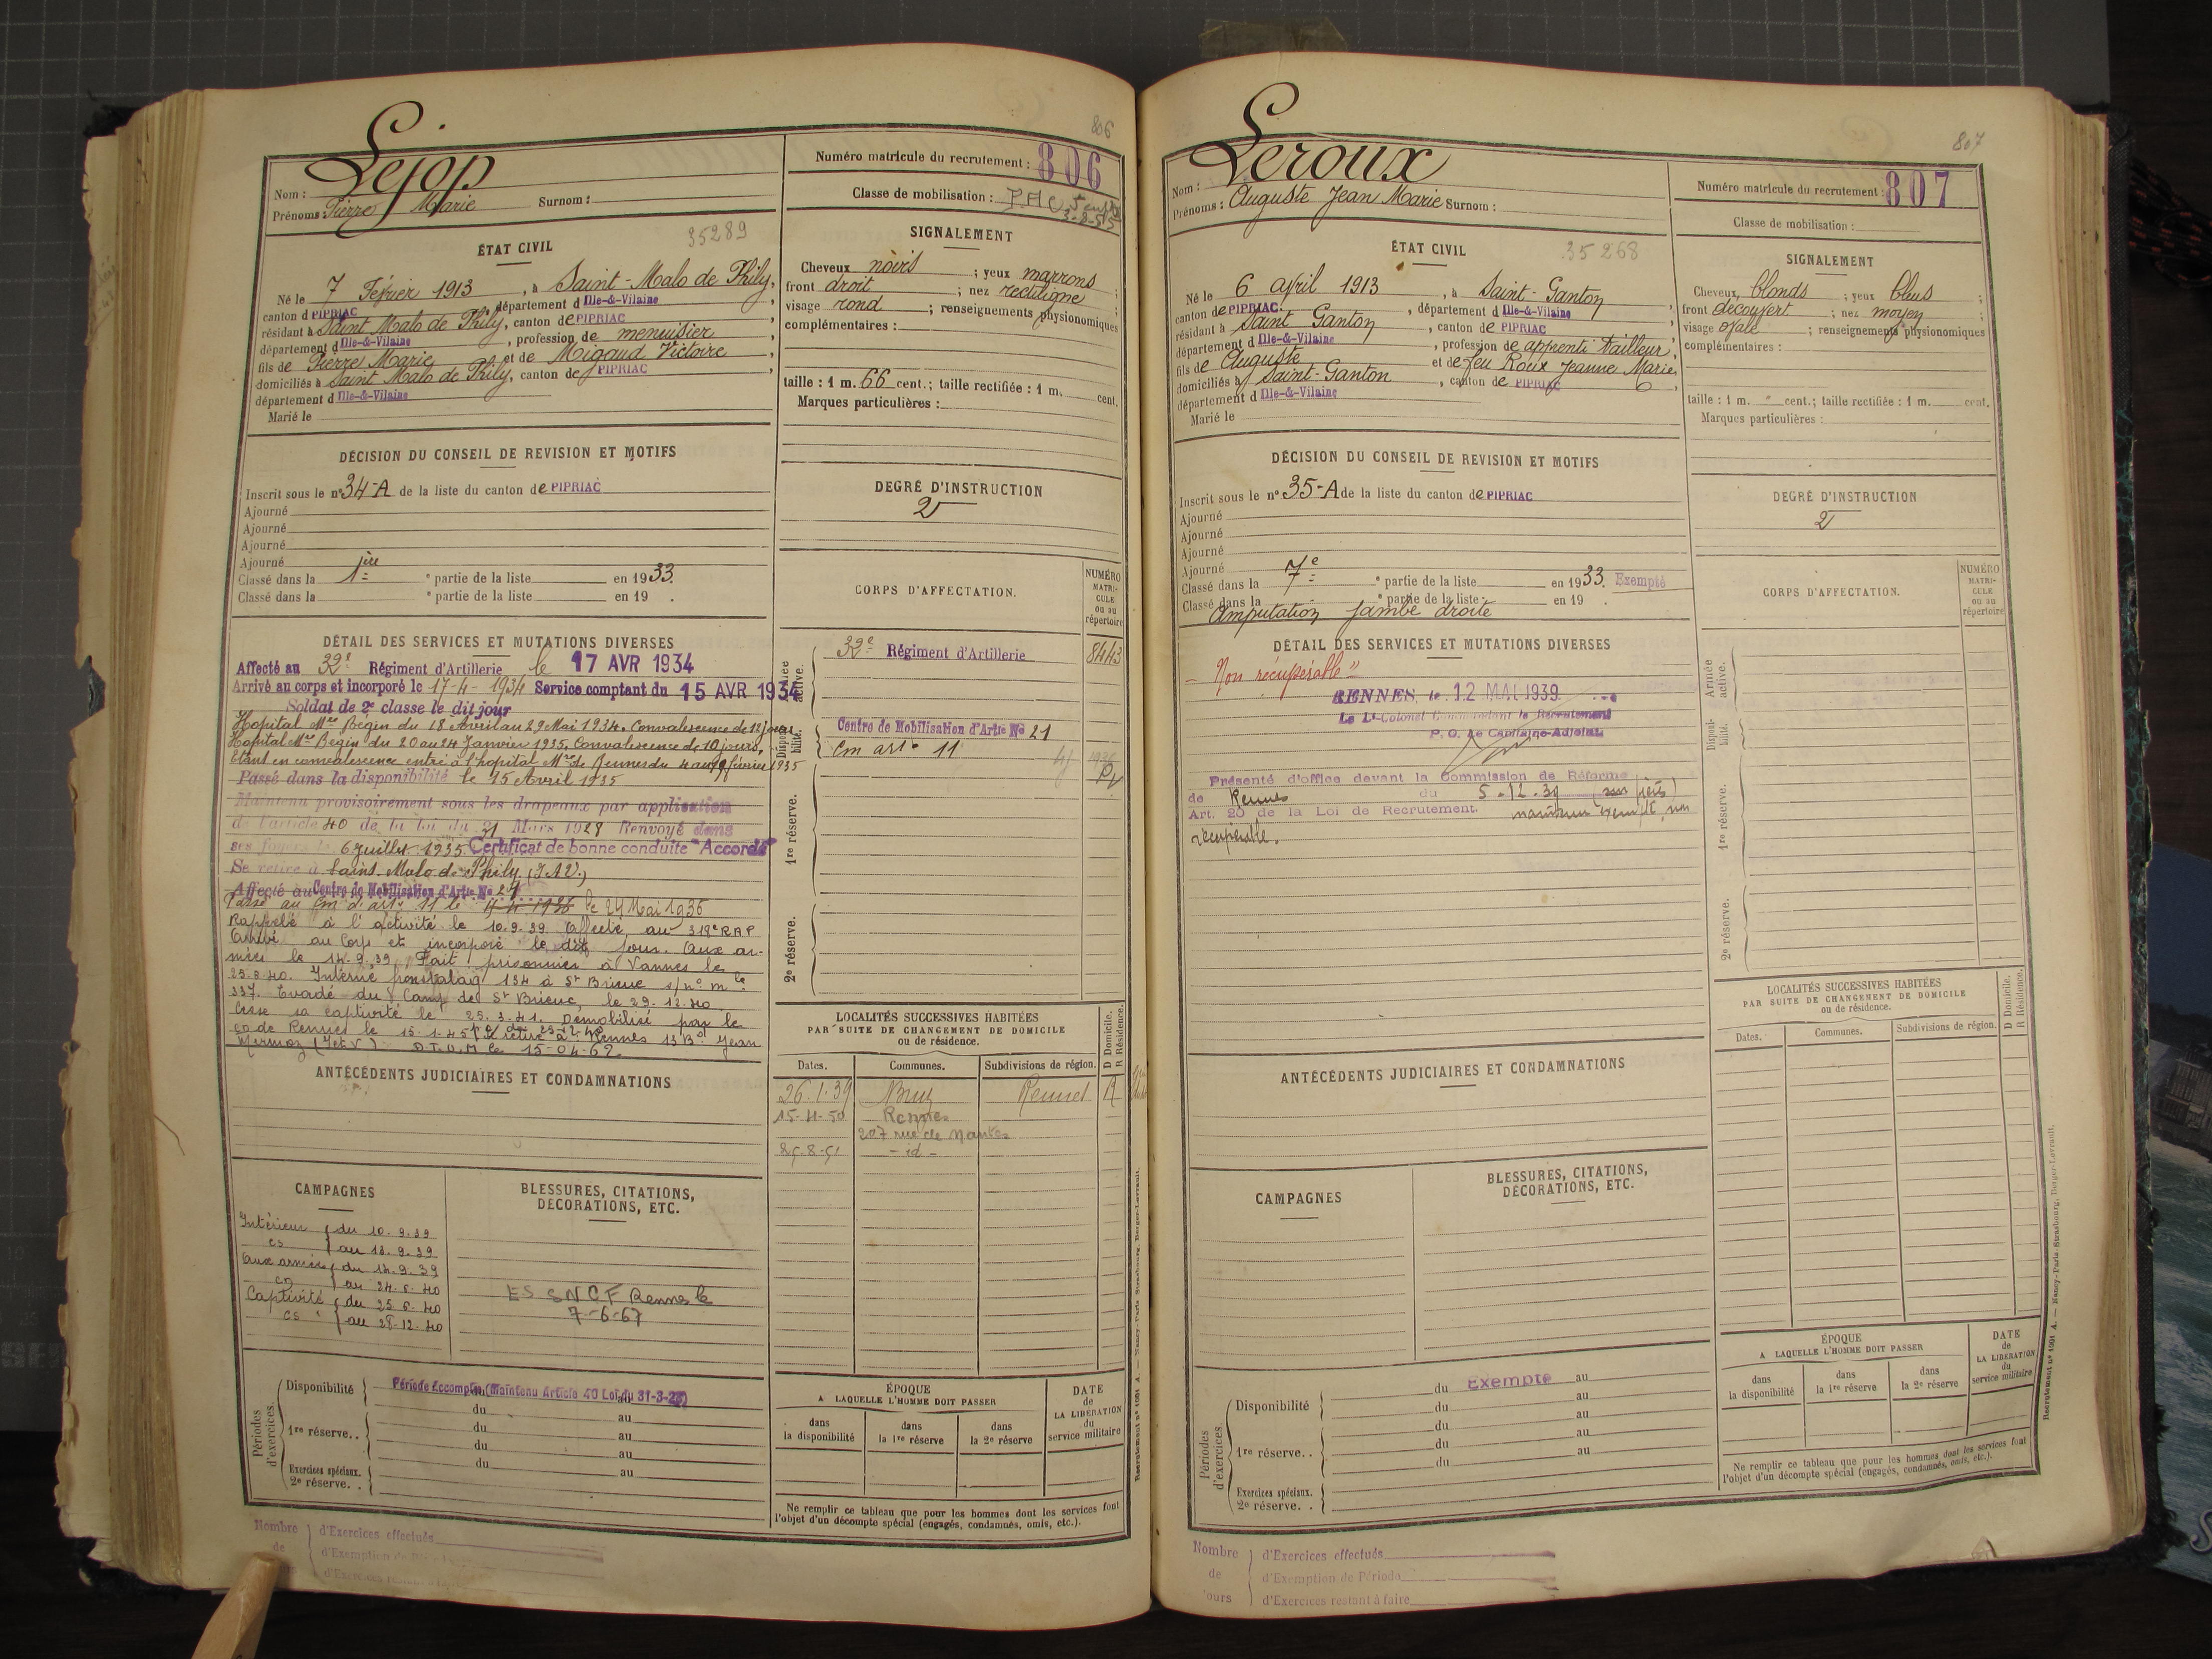 806
Nom : Lejop
Prénoms : Pierre Marie Surnom :
Numéro matricule du recrutement : 806
Classe de mobilisation :
ÉTAT CIVIL
35289
Né le 7 Février 1913, à Saint-Malo de Phily,
canton de PIPRIAC, département d Ille-&-Vilaine,
résidant à Saint Malo de Phily, canton de PIPRIAC
département d Ille-&-Vilaine, profession de menuisier
fils de Pierre Marie et de Migaud Victoire,
domiciliés à Saint Malo de Phily, canton de PIPRIAC,
département d Ille-&-Vilaine
Marié le
SIGNALEMENT
Cheveux noirs ; yeux marrons ;
front droit ; nez rectiligne ;
visage rond ; renseignements physionomiques
complémentaires :
taille : 1 m. 66 cent. ; taille rectifiée : 1 m. cent.
Marques particulières :
DÉCISION DU CONSEIL DE REVISION ET MOTIFS
Inscrit sous le n° 34-A de la liste du canton de PIPRIAC
Ajourné
Ajourné
Ajourné
Ajourné
Classé dans la 1ère partie de la liste en 1933.
Classé dans la e partie de la liste en 19 .
DEGRÉ D'INSTRUCTION
2
DÉTAIL DES SERVICES ET MUTATIONS DIVERSES
Affecté au 32e Régiment d'Artillerie le 17 AVR 1934
Arrivé au corps et incorporé le 17-4-1934 Service comptant du 15 AVR 1934
Soldat de 2e classe le dit jour
Hopital Mre Bégin du 18 Avril au 29 Mai 1934. Convalescence de 18 jours
Hopital Mre Bégin du 20 au 24 Janvier 1935. Convalescence de 10 jours,
Etant en convalescence entré à l'hopital Mre de Rennes du 4 au 19 février 1935
Passé dans la disponibilité le 15 Avril 1935
Maintenu provisoirement sous les drapeaux par application
de l'article 40 de la loi du 31 Mars 1928 Renvoyé dans
ses foyers le 6 juillet 1935 Certificat de bonne conduite "Accordé"
Se retire à Saint-Malo de Phily (I&V.)
Affecté au Centre de Mobilisation d'Artie N° 21
Passé au Cm d'artie 11 le 4-4-1936 le 24 Mai 1936
Rappelé à l'activité le 10.9.39 Affecté au 318e RAP
Arrivé au Corps et incorporé le dit jour. Aux ar-
mées le 14.9.39. Fait prisonnier à Vannes le
Interné frontstalag 134 à St Brieuc s/n° mle
337. Evadé du Camp de St Brieuc, le 29.12.40
Cesse sa captivité le 25.3.41. Démobilisé par le
CD de Rennes le 15.1.45 se retire à Rennes 13 Bd Jean
Mermoz (I et V) D.T.U.M le 15-04-62
CORPS D'AFFECTATION.
NUMÉRO MATRICULE ou au répertoire
Armée active.
32e Régiment d'Artillerie 8443
Disponibilité.
Centre de Mobilisation d'Artie N° 21
Cm artie 11
1re réserve.
2e réserve.
ANTÉCÉDENTS JUDICIAIRES ET CONDAMNATIONS
LOCALITÉS SUCCESSIVES HABITÉES
PAR SUITE DE CHANGEMENT DE DOMICILE
ou de résidence.
D Domicile.
R Résidence.
Dates. Communes. Subdivisions de région.
26.1.39 Bruz Rennes R
15-4-50 Rennes
207 rue de Nantes
25.8.51 - id -
CAMPAGNES
Intérieur du 10.9.39
cs au 13.9.39
Aux armées du 14.9.39
CD au 24.6.40
Captivité du 25.6.40
cs au 28.12.40
BLESSURES, CITATIONS,
DÉCORATIONS, ETC.
ES SNCF Rennes le
7-6-67
Périodes d'exercices.
Disponibilité Période Accomplie (Maintenu Article 40 Loi du 31-3-28)
du au
1re réserve. . du au
du au
du au
Exercices spéciaux.
2e réserve. .
ÉPOQUE
A LAQUELLE L'HOMME DOIT PASSER
dans la disponibilité
dans la 1re réserve
dans la 2e réserve
DATE de LA LIBÉRATION du service militaire
Ne remplir ce tableau que pour les hommes dont les services font
l'objet d'un décompte spécial (engagés, condamnés, omis, etc.).
Nombre de
d'Exercices effectués
d'Exemption de
807
Nom : Leroux
Prénoms : Auguste Jean Marie Surnom :
Numéro matricule du recrutement : 807
Classe de mobilisation :
ÉTAT CIVIL
35268
Né le 6 avril 1913, à Saint-Ganton,
canton de PIPRIAC, département d Ille-&-Vilaine,
résidant à Saint Ganton, canton de PIPRIAC
département d Ille-&-Vilaine, profession de apprenti tailleur,
fils de Auguste et de feu Roux Jeanne Marie,
domiciliés à Saint-Ganton, canton de PIPRIAC,
département d Ille-&-Vilaine
Marié le
SIGNALEMENT
Cheveux blonds ; yeux bleus ;
front découvert ; nez moyen ;
visage ovale ; renseignements physionomiques
complémentaires :
taille : 1 m. cent. ; taille rectifiée : 1 m. cent.
Marques particulières :
DÉCISION DU CONSEIL DE REVISION ET MOTIFS
Inscrit sous le n° 35-A de la liste du canton de PIPRIAC
Ajourné
Ajourné
Ajourné
Ajourné
Classé dans la 7e partie de la liste en 1933. Exempté
Classé dans la e partie de la liste en 19 .
Amputation jambe droite
DEGRÉ D'INSTRUCTION
2
DÉTAIL DES SERVICES ET MUTATIONS DIVERSES
- "Non récupérable"
RENNES, le 12 MAI 1939
Le Lt-Colonel Commandant le Recrutement
P. O. Le Capitaine-Adjoint
Présenté d'office devant la Commission de Réforme
de Rennes du 5-12-39 (sur pièces)
Art. 20 de la Loi de Recrutement. maintenu exempté non
récupérable.
CORPS D'AFFECTATION.
NUMÉRO MATRICULE ou au répertoire
Armée active.
Disponibilité.
1re réserve.
2e réserve.
ANTÉCÉDENTS JUDICIAIRES ET CONDAMNATIONS
LOCALITÉS SUCCESSIVES HABITÉES
PAR SUITE DE CHANGEMENT DE DOMICILE
ou de résidence.
D Domicile.
R Résidence.
Dates. Communes. Subdivisions de région.
CAMPAGNES
BLESSURES, CITATIONS,
DÉCORATIONS, ETC.
Périodes d'exercices.
Disponibilité du Exempté au
du au
du au
1re réserve. . du au
du au
Exercices spéciaux.
2e réserve. .
ÉPOQUE
A LAQUELLE L'HOMME DOIT PASSER
dans la disponibilité
dans la 1re réserve
dans la 2e réserve
DATE de LA LIBÉRATION du service militaire
Ne remplir ce tableau que pour les hommes dont les services font
l'objet d'un décompte spécial (engagés, condamnés, omis, etc.).
Recrutement n° 1091 A. — Nancy-Paris-Strasbourg, Berger-Levrault.
Nombre de jours
d'Exercices effectués
d'Exemption de Période
d'Exercices restant à faire